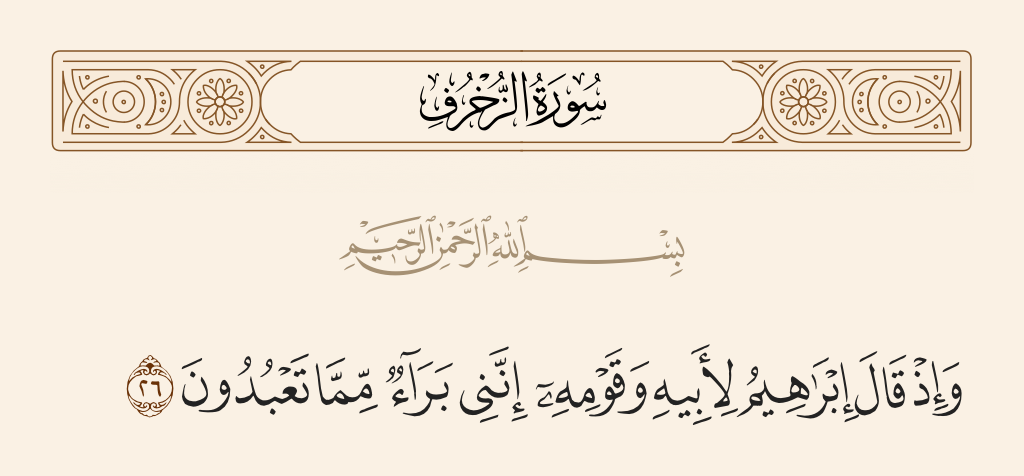 سُورَةُ الزُّخْرُفِ
بِسْمِ ٱللَّهِ ٱلرَّحْمَٰنِ ٱلرَّحِيمِ
وَإِذْ قَالَ إِبْرَٰهِيمُ لِأَبِيهِ وَقَوْمِهِۦٓ إِنَّنِى بَرَآءٌۭ مِّمَّا تَعْبُدُونَ ٢٦